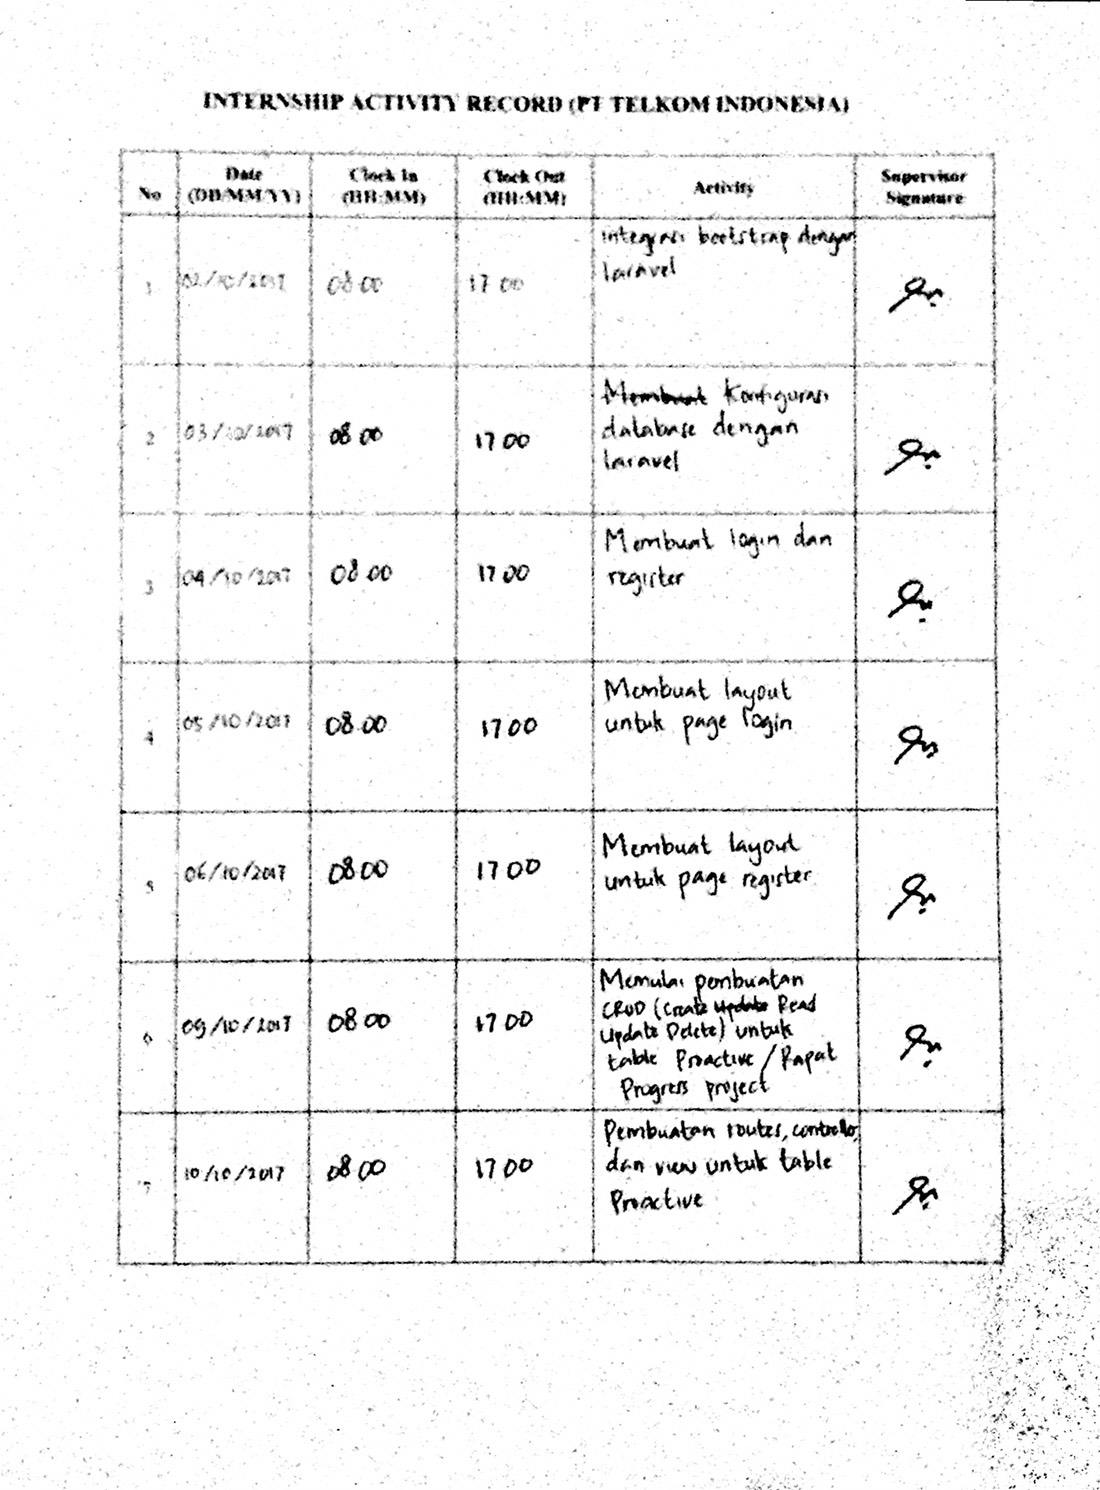 INTERNSHIP ACTIVITY RECORD (PT TELKOM INDONESIA)
No Date (DD/MM/YY) Clock In (HH:MM) Clock Out (HH:MM) Activity Supervisor Signature
1 02/10/2017 08.00 17.00 Integrasi bootstrap dengan
laravel
2 03/10/2017 08.00 17.00 Membuat Konfigurasi
database dengan
laravel
3 04/10/2017 08.00 17.00 Membuat login dan
register
4 05/10/2017 08.00 17.00 Membuat layout
untuk page login
5 06/10/2017 08.00 17.00 Membuat layout
untuk page register
6 09/10/2017 08.00 17.00 Memulai pembuatan
CRUD (Create Update Read
Update Delete) untuk
table Proactive / Rapat
Progress project
7 10/10/2017 08.00 17.00 Pembuatan routes, controller,
dan view untuk table
Proactive